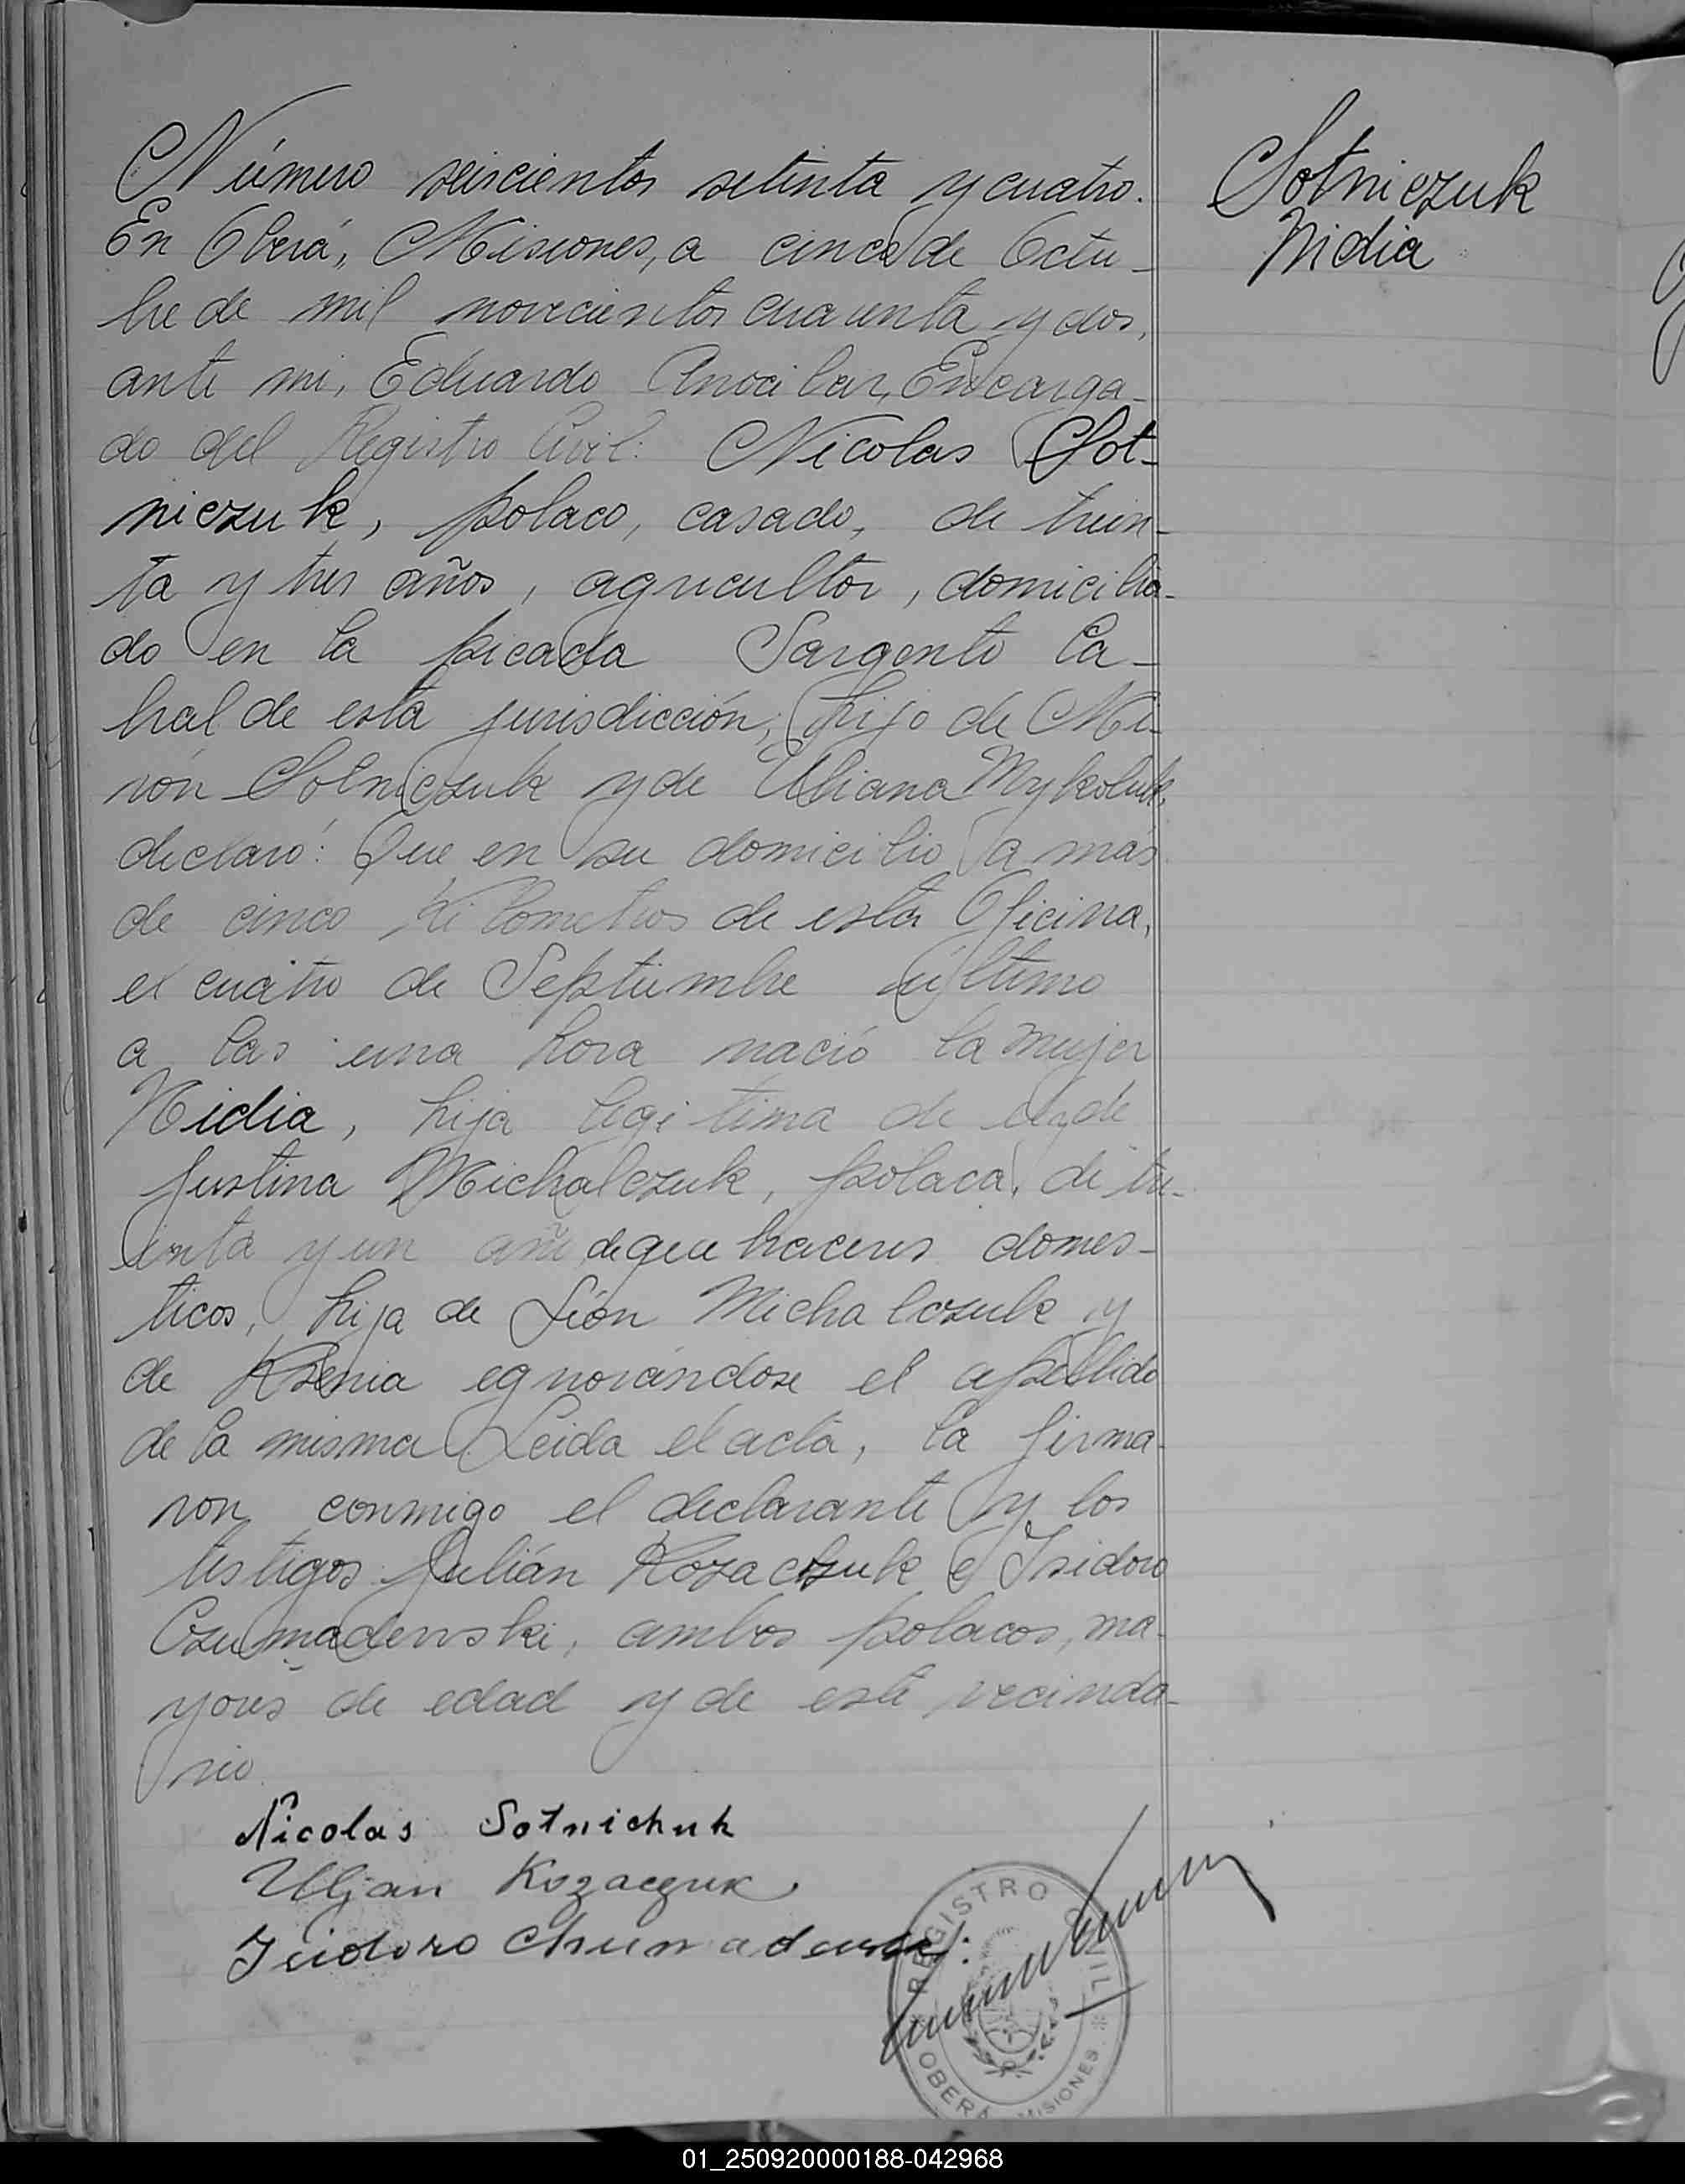 Número seiscientos setenta y cuatro.
En Oberá, Misiones, a cinco de Octu-
bre de mil novecientos cuarenta y dos,
ante mi, Eduardo Encarga-
do del Registro Civil: Nicolas Sot-
niczuk, polaco, casado, de trein-
ta y tres años, agricultor, domicilia-
do en la picada Sargento Ca-
bral de esta jurisdicción, hijo de Mi-
rón Sotniczuk y de Uliana Mykoluk,
declaró: Que en su domicilio a más
de cinco kilometros de esta Oficina,
el cuatro de Septiembre último
a las una hora nació la mujer
Nidia, hija legitima de él y de
Justina Michalczuk, polaca, de tre-
inta y un año de que haceres domes-
ticos, hija de León Michalczuk y
de Ksenia egnorándose el apellido
de la misma Leida el acta, la firma-
ron conmigo el declarante y los
testigos Julián Kozaczuk e Isidoro
Czumadewski, ambos polacos, ma-
yores de edad y de este vecinda-
rio.
Sotniczuk
Nidia
Nicolas Sotnichuk
Uljan Kozaczuk
Isidoro
REGISTRO CIVIL
OBERÁ MISIONES
01_250920000188-042968